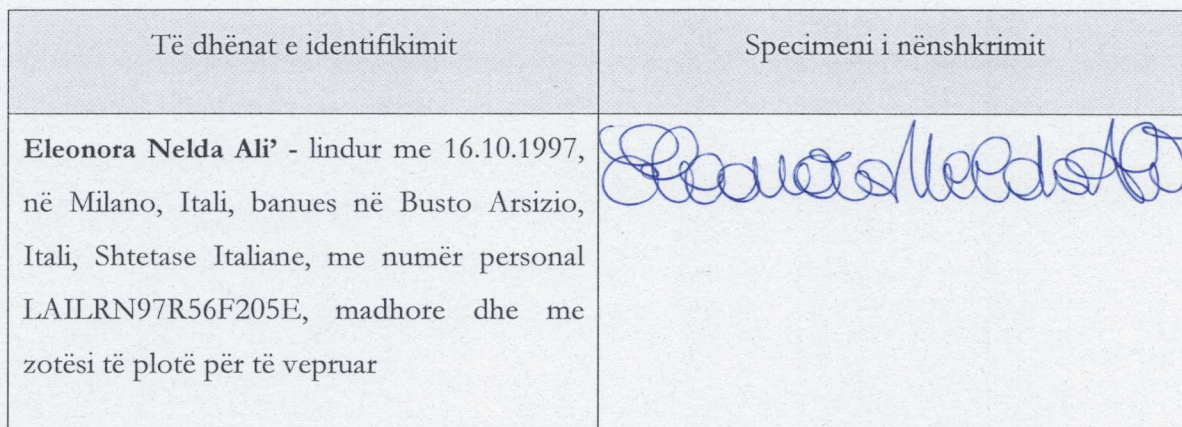 Të dhënat e identifikimit
Specimeni i nënshkrimit
Eleonora Nelda Ali’ - lindur me 16.10.1997,
në Milano, Itali, banues në Busto Arsizio,
Itali, Shtetase Italiane, me numër personal
LAILRN97R56F205E, madhore dhe me
zotësi të plotë për të vepruar
Eleonora Nelda Ali'